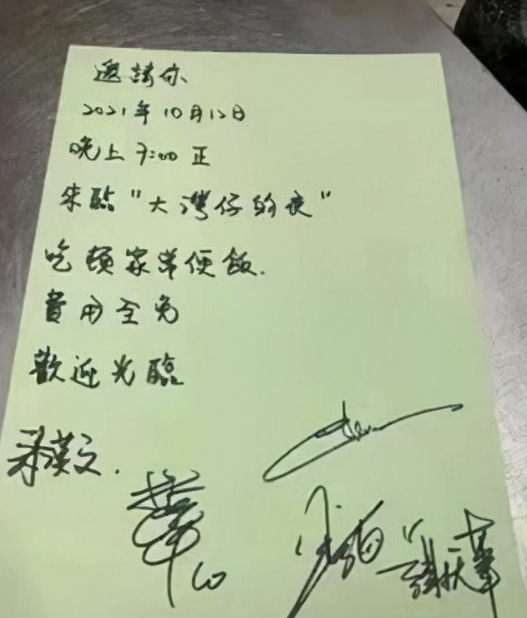 邀請你
2021年10月12日
晚上7:00正
来臨"大灣仔的夜"
吃頓家常便飯.
費用全免
歡迎光臨
梁漢文.
謝天華